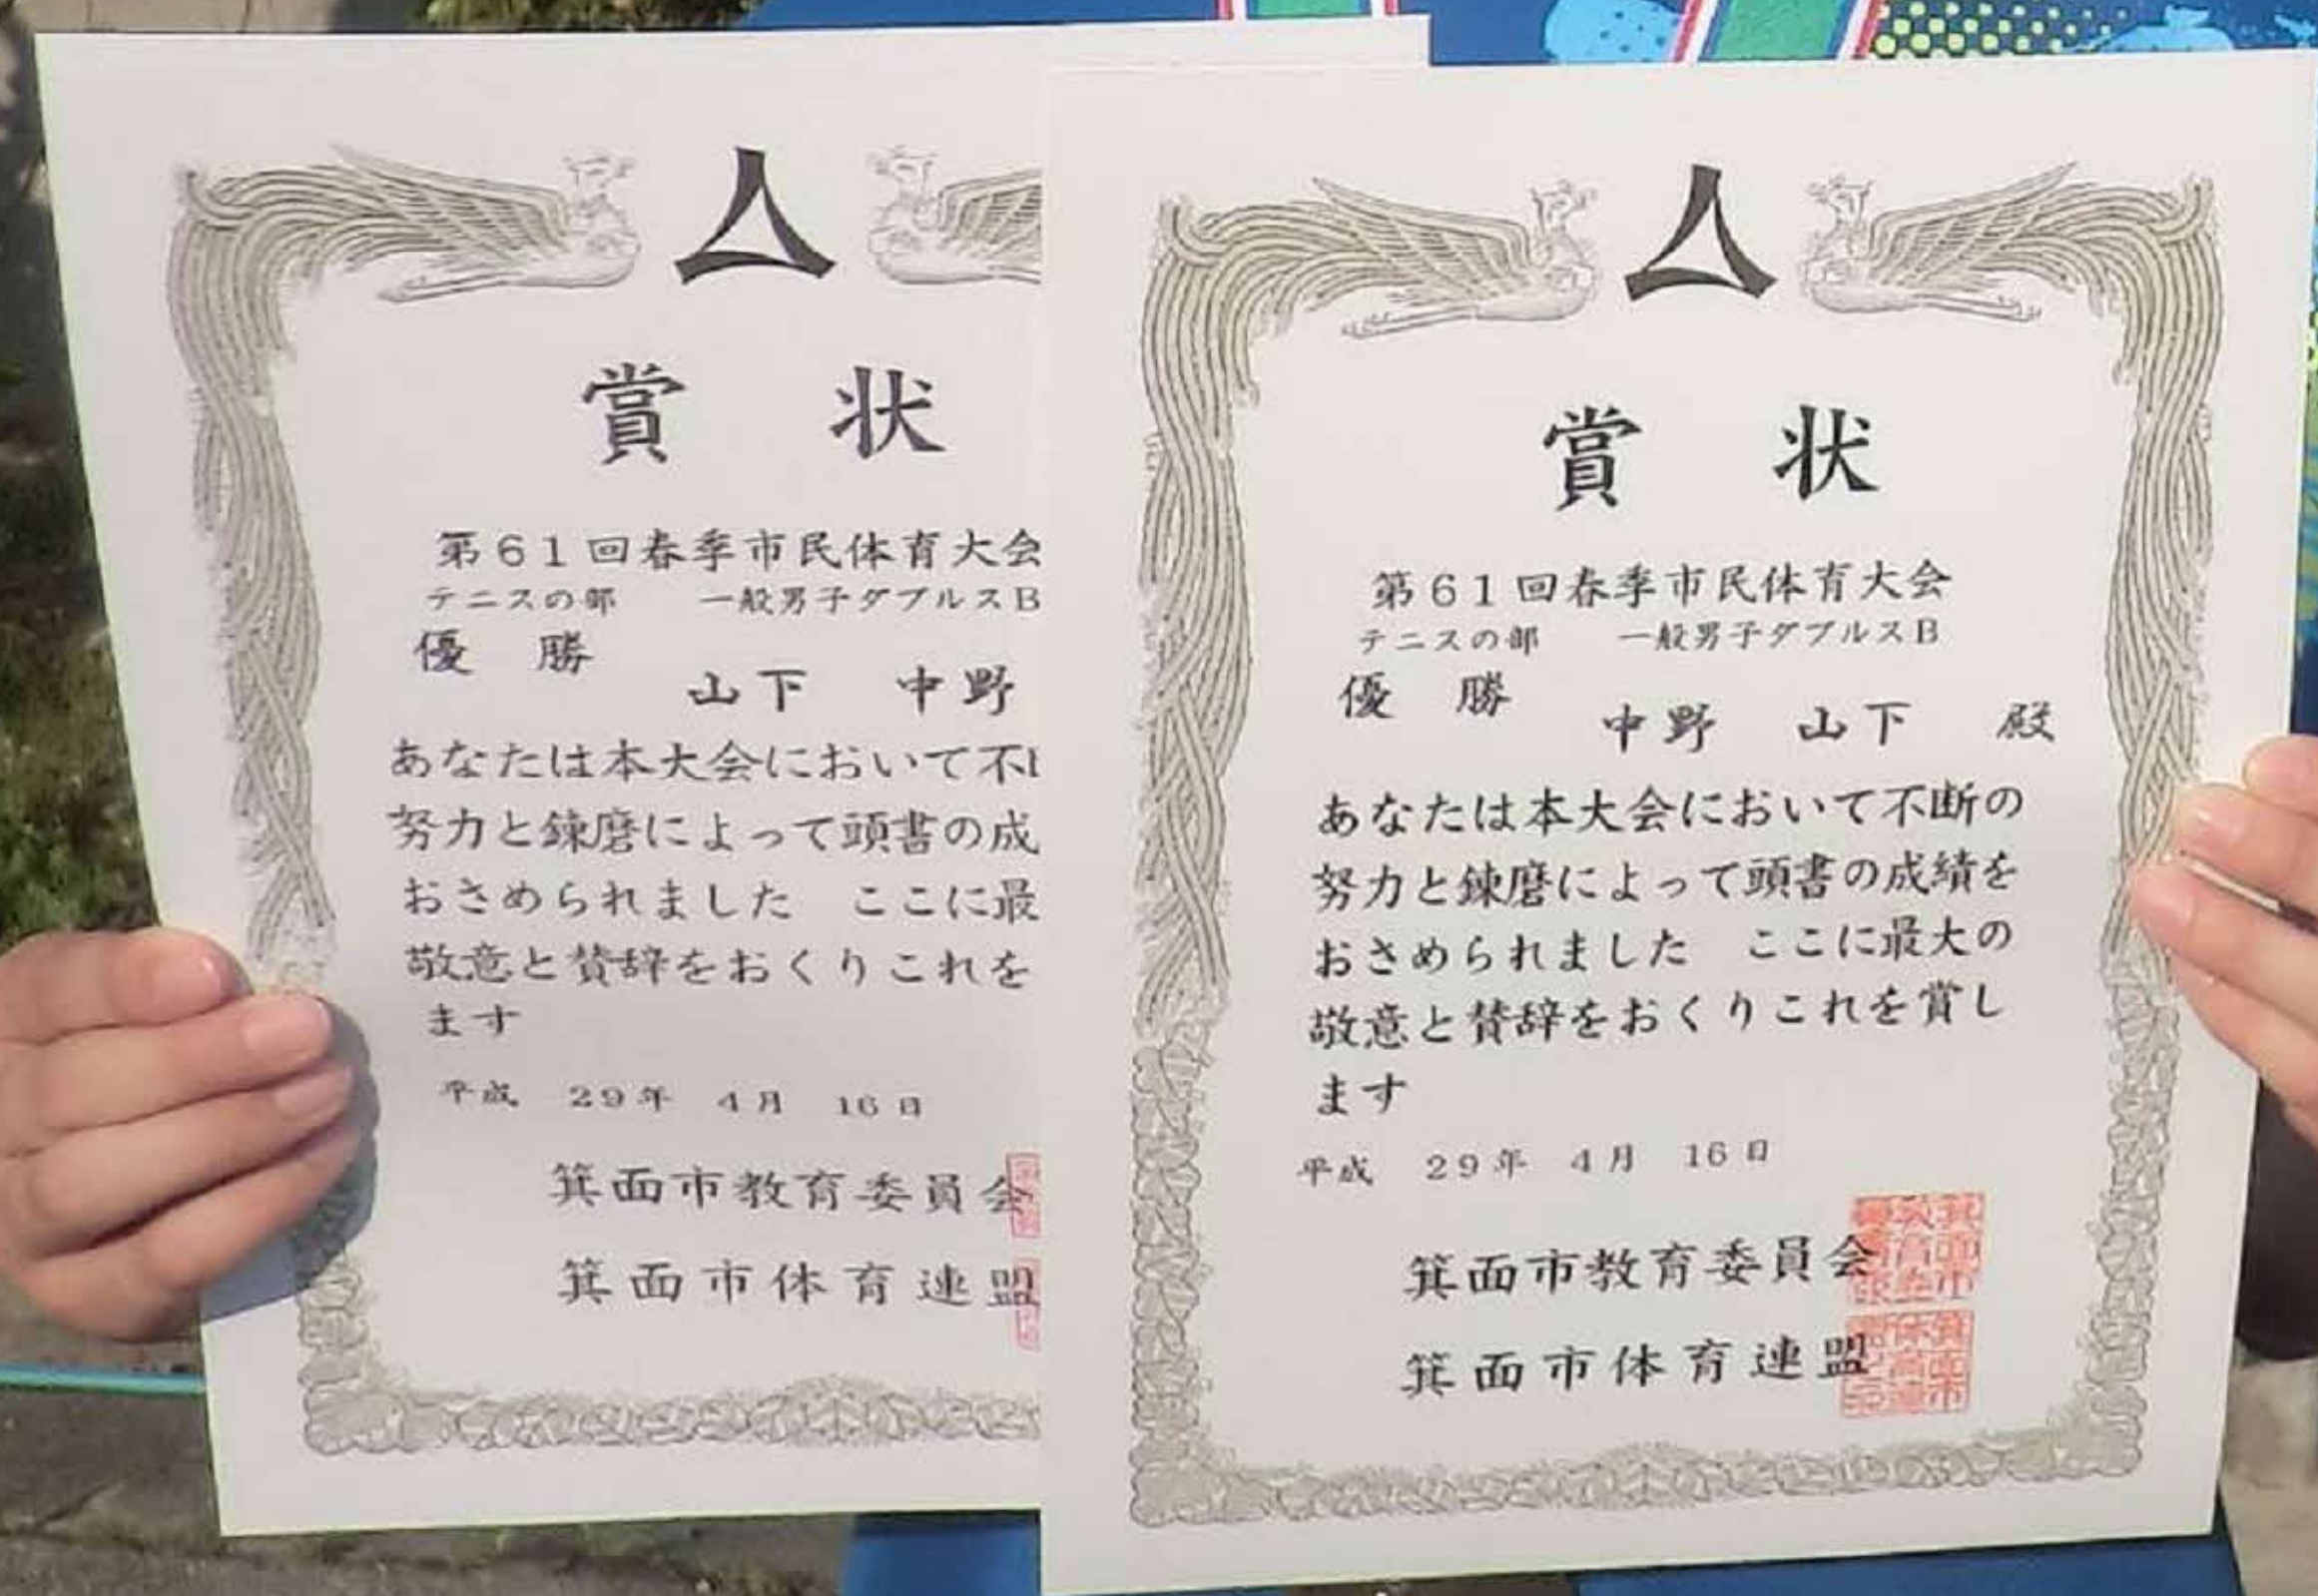 賞状
第61回春季市民体育大会
テニスの部 一般男子ダブルスB
優勝
山下 中野
あなたは本大会において不
努力と錬磨によって頭書の成
おさめられました ここに最
敬意と賛辞をおくりこれを
ます
平成 29年 4月 16日
箕面市教育委員会
箕面市体育連盟
賞状
第61回春季市民体育大会
テニスの部 一般男子ダブルスB
優勝
中野 山下 殿
あなたは本大会において不断の
努力と錬磨によって頭書の成績を
おさめられました ここに最大の
敬意と賛辞をおくりこれを賞し
ます
平成 29年 4月 16日
箕面市教育委員会
箕面市体育連盟